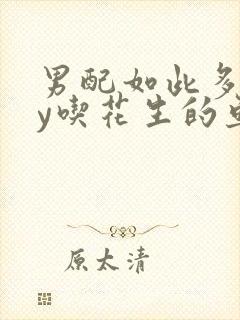 男配如此多
y喫花生的
原太清